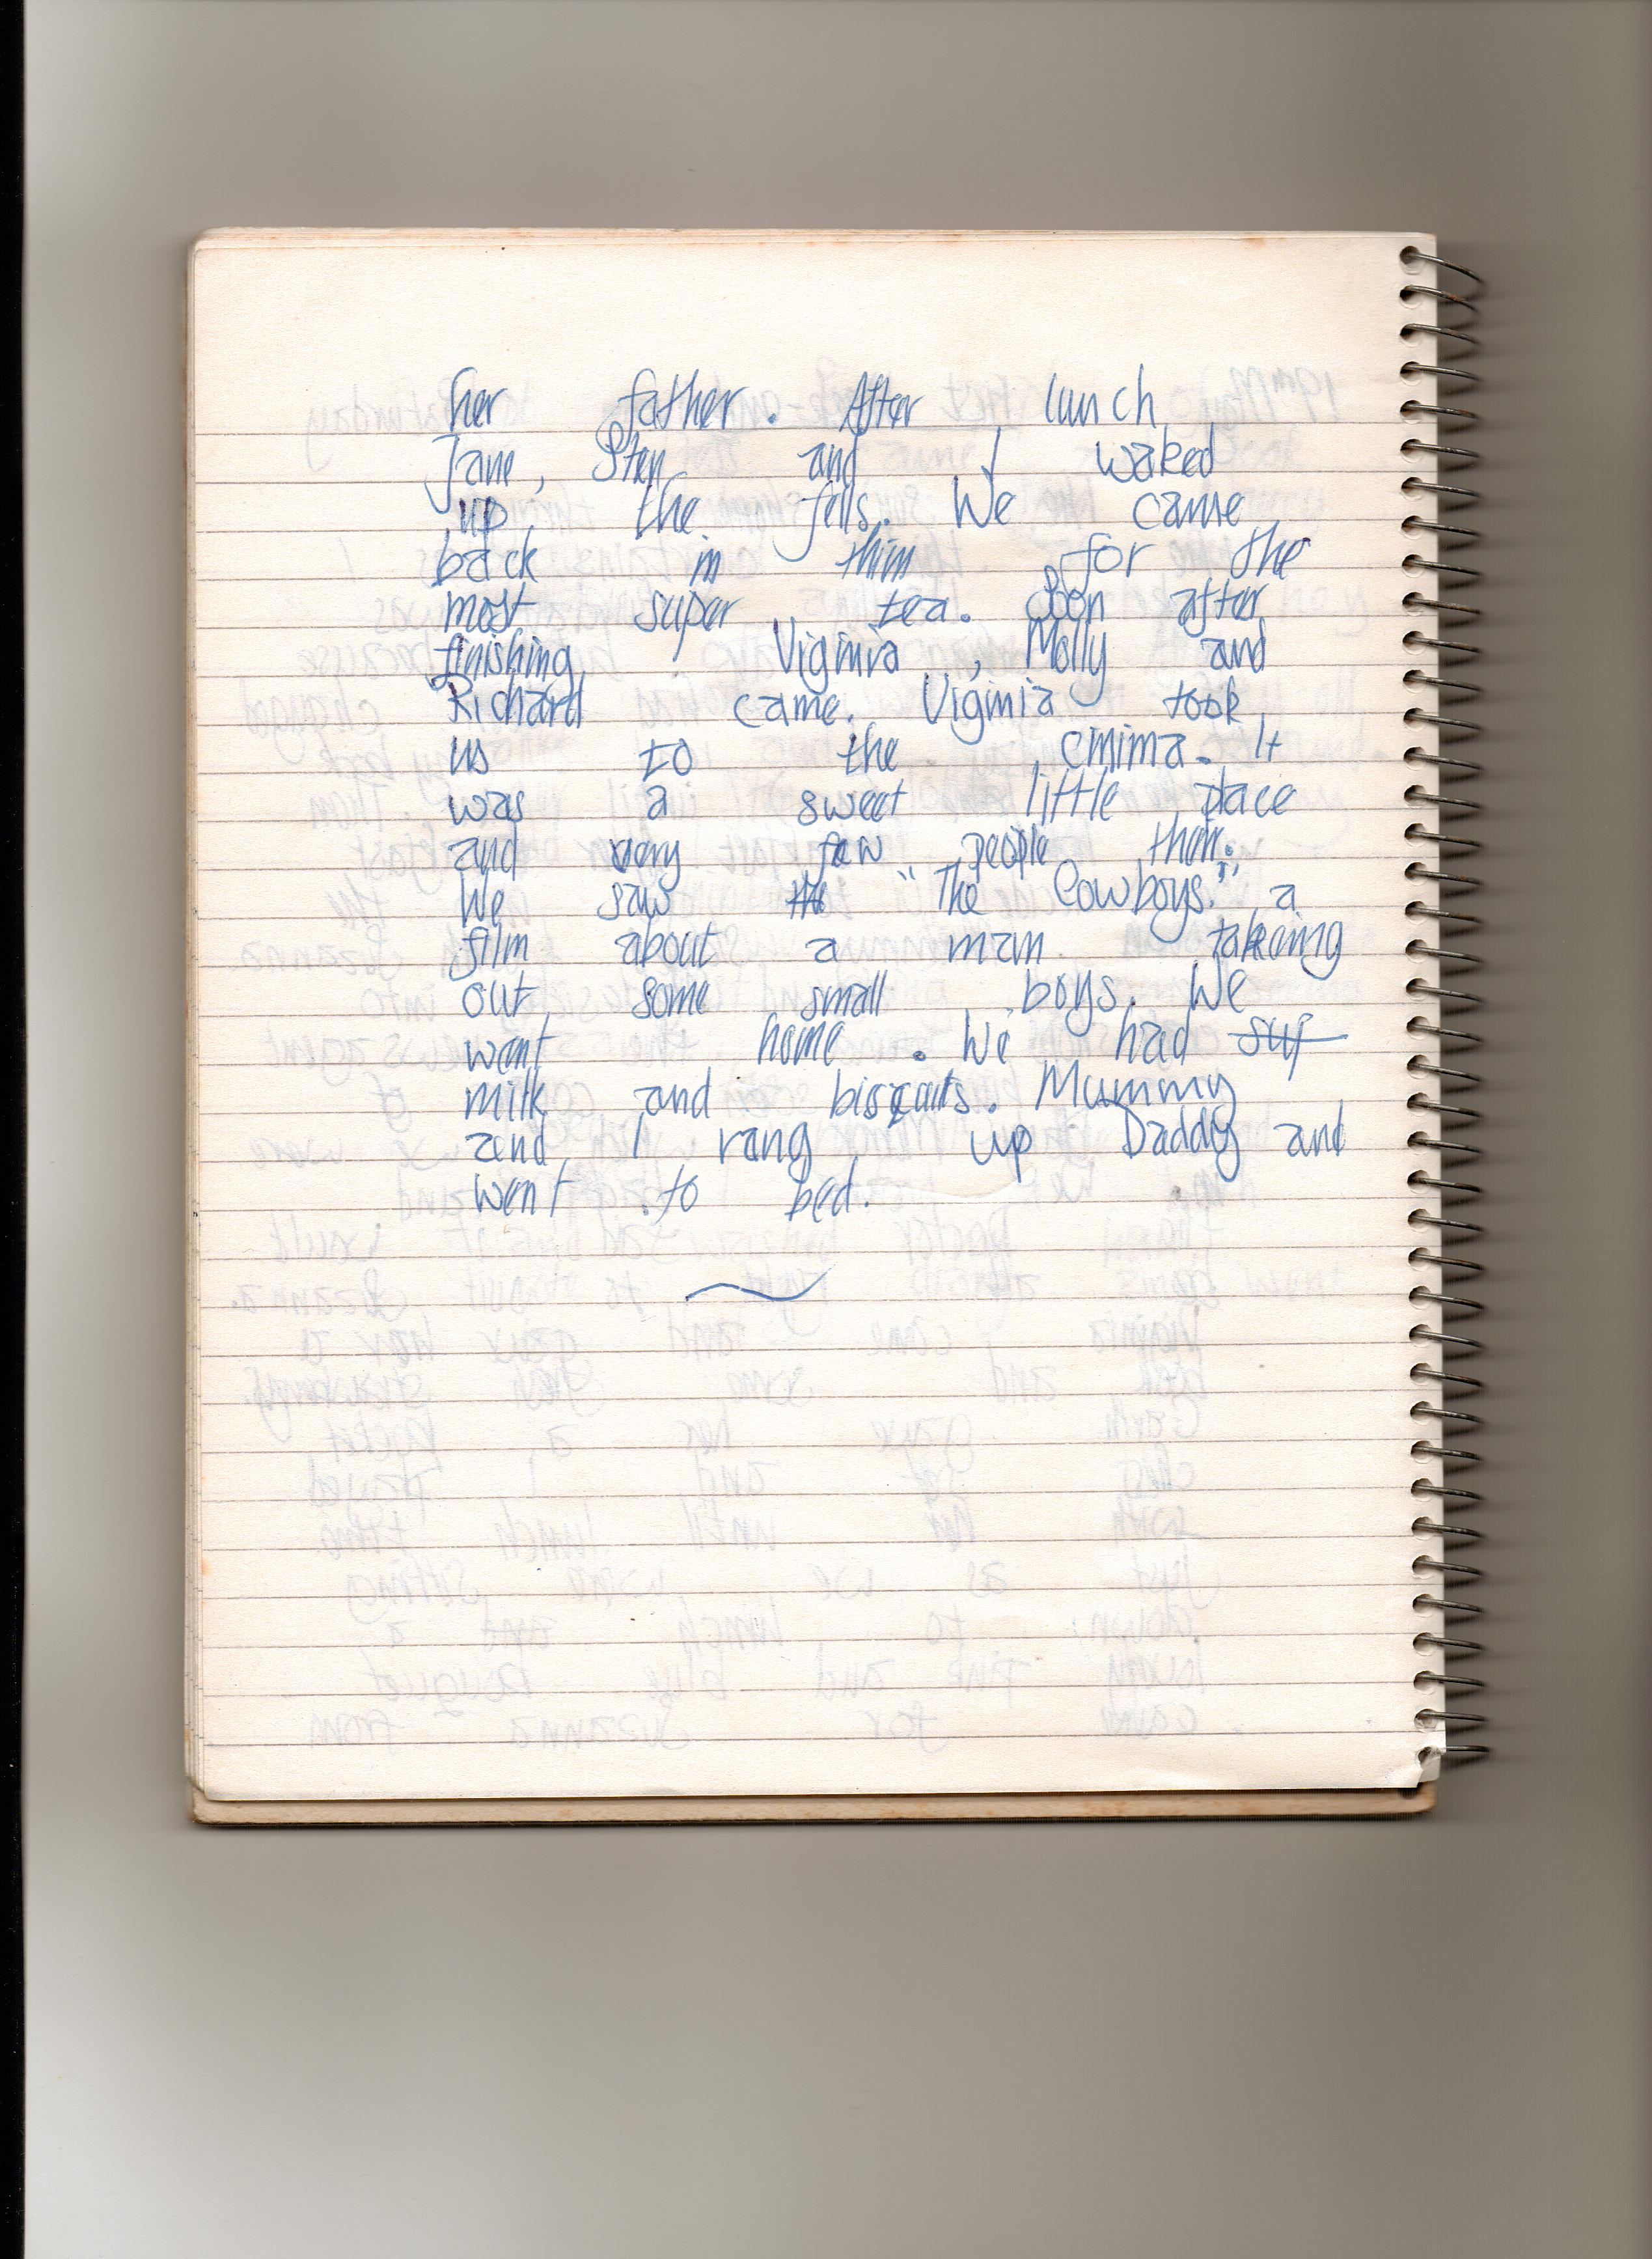 her father. After lunch
Jane, Sten and I waked
up the fells. We came
back in thim for the
most super tea. Soon after
finishing Viginia, Molly and
Richard came. Viginia took
us to the cinima. It
was a sweet little place
and very few people then.
We saw the "The Cowboys." a
film about a man takeing
out some small boys. We
went home. We had sup
milk and biscuits. Mummy
and I rang up Daddy and
went to bed.